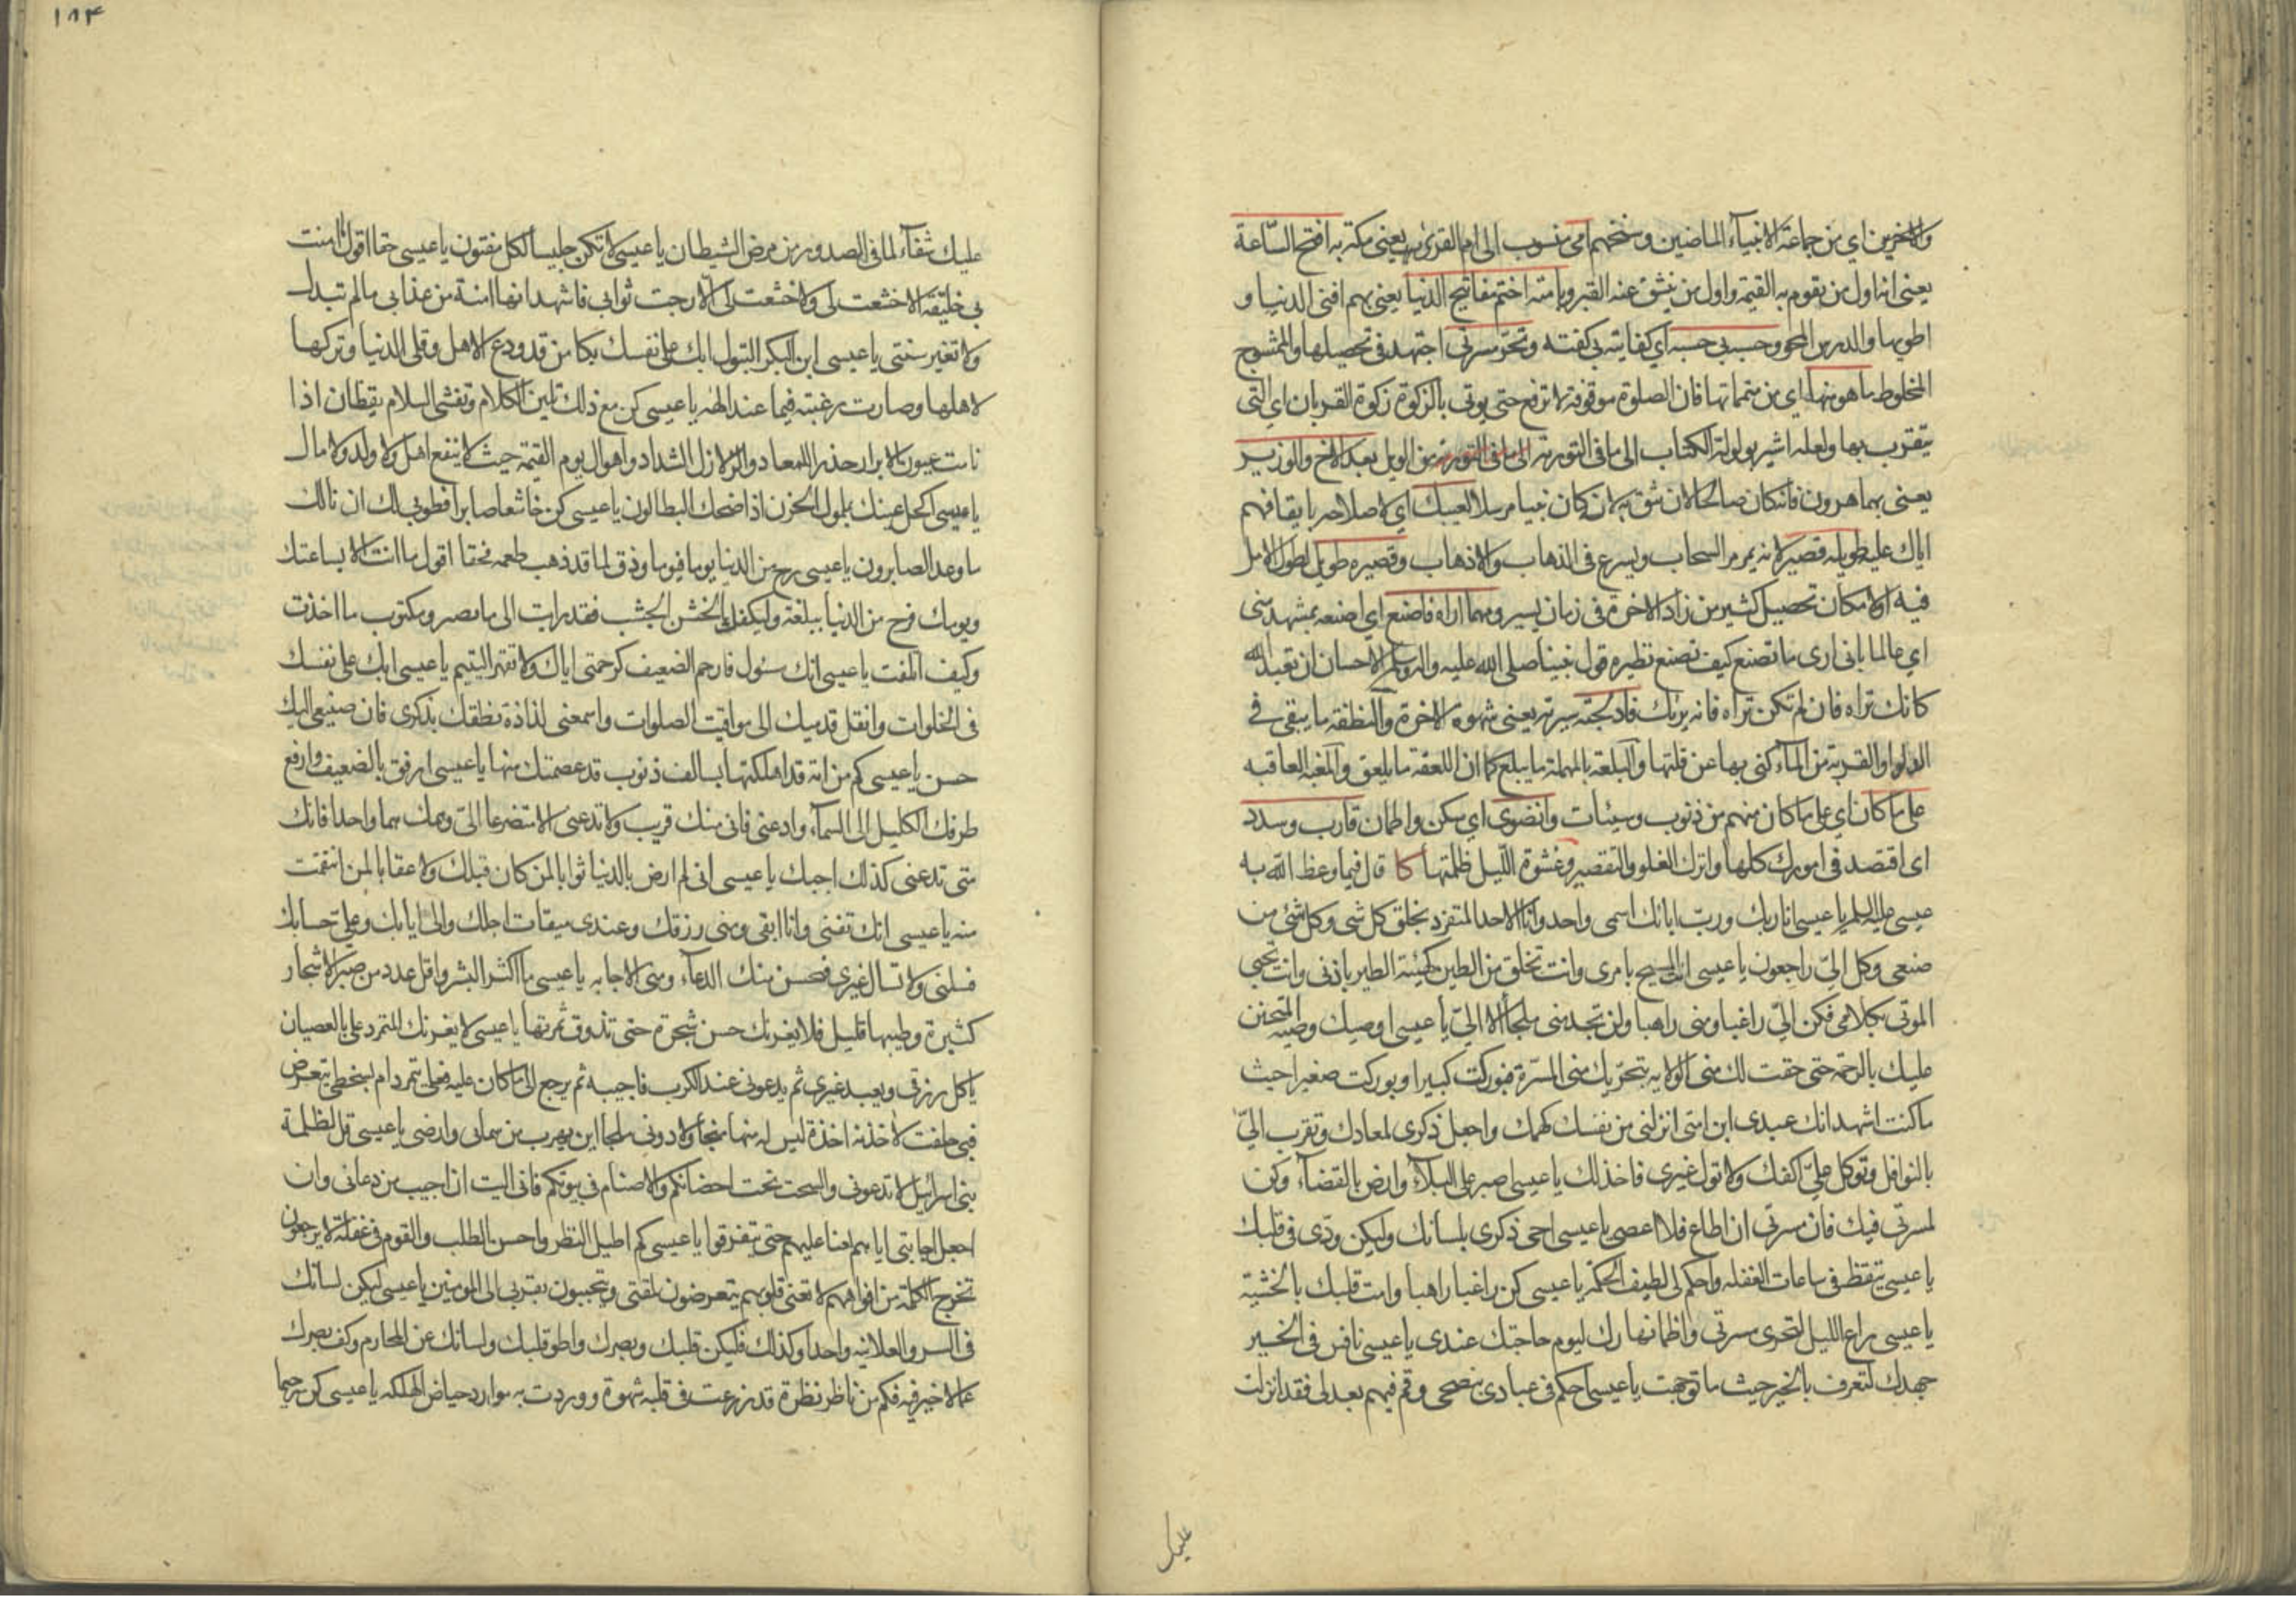 والاخرين اي من جماعة الانبياء الماضين وشخهم امي منسوب الى ام القرى يعني مكة به افتح الساعة
يعني انه اول من يقوم به القيمة واول من ينشق عنه القبر وبامته اختم مفاتيح الدنيا يعني بهم افني الدنيا و
اطويها والدرس المحو وحسبي حسبه اي كفايته بي كفته وتحر مسرتي اجتهد في تحصيلها والممشوج
المخلوط ما هو منها اي من متمماتها فان الصلوة موقوفة لا ترفع حتى يوتي بالزكوة زكوة القربان اي التي
يتقرب بها ولعله اشير بولولة الكتاب الى ما في التورية من الويل بعبدك الاخ والوزير
يعني بهما هرون فانه كان صالحا لان شق به لان كان نبيا مرسلا لعيبك اي لاصلاحه بايقافهم
اياك عليه طويله قصير لانه يمر مر السحاب ويسرع في الذهاب والاذهاب وقصيره طويل لطول الامل
فيه او لامكان تحصيل كثير من زاد الاخرة في زمان يسير ومهما اراه فاصنع اي اصنعه بمشهد مني
اي عالما باني ارى ما تصنع كيف تصنع نظيره قول نبينا صلى الله عليه واله وسلم الاحسان ان تعبد الله
كانك تراه فان لم تكن تراه فانه يريك فادلجته سيرته يعني شهوة الاخرة والنطفة ما يبقى في
الدلو او القربة من الماء كنى بها عن قلتها والبلعة بالمهملة ما يبلع كما ان اللعقة ما يلعق والمغبة العاقبه
على ما كان اي على ما كان منهم من ذنوب وسيئات وانضوى اي سكن واطمان قارب وسدد
اي اقتصد في امورك كلها واترك الغلو والتقصير وعشوة الليل ظلمتها كا قال فيما وعظ الله به
عيسى عليه السلم يا عيسى انا ربك ورب ابائك اسمي واحد وانا الاحد المتفرد بخلق كل شي وكل شئ من
صنعي وكل الي راجعون يا عيسى انت المسيح بامري وانت تخلق من الطين كهيئة الطير باذني وانت تحيي
الموتى بكلامي فكن الي راغبا ومني راهبا ولن تجد مني ملجأ الا الي يا عيسى اوصيك وصية المتحنن
عليك بالرحمة حتى حقت لك مني الولايه بتحريك مني المسرة فبوركت كبيرا وبوركت صغيرا حيث
ما كنت اشهد انك عبدي ابن امتي انزلني من نفسك كهمك واجعل ذكري لمعادك وتقرب الي
بالنوافل وتوكل علي اكفك ولا تول غيري فاخذلك يا عيسى اصبر على البلاء وارض بالقضاء وكن
لمسرتي فيك فان مسرتي ان اطاع فلا اعصى يا عيسى احي ذكري بلسانك وليكن ودي في قلبك
يا عيسى تيقظ في ساعات الغفله واحكم لي لطيف الحكمة يا عيسى كن راغبا راهبا وامت قلبك بالخشية
يا عيسى راع الليل لتحري مسرتي واظمأ نهارك ليوم حاجتك عندي يا عيسى نافس في الخير
جهدك لتعرف بالخير حيث ما توجهت يا عيسى احكم في عبادي بنصحي وقم فيهم بعدلي فقد انزلت
عليك
١٨٤
عليك شفاء لما في الصدور من مرض الشيطان يا عيسى لا تكن جليسا لكل مفتون يا عيسى حقا اقول ما امنت
بي خليقة الا خشعت لي ولا خشعت لي الا رجت ثوابي فاشهد انها امنة من عذابي ما لم تبدل
ولا تغير سنتي يا عيسى ابن البكر البتول ابك على نفسك بكا من قد ودع الاهل وقلى الدنيا وتركها
لاهلها وصارت رغبته فيما عند الهه يا عيسى كن مع ذلك تلين الكلام وتفشي السلام يقظان اذا
نامت عيون الابرار حذرا للمعاد والزلازل الشداد واهوال يوم القيمة حيث لا ينفع اهل ولا ولد ولا مال
يا عيسى اكحل عينك بملول الحزن اذا ضحك البطالون يا عيسى كن خاشعا صابرا فطوبى لك ان نالك
ما وعد الصابرون يا عيسى رح من الدنيا يوما فيوما وذق لما قد ذهب طعمه فحقا اقول ما انت الا بساعتك
ويومك فرح من الدنيا ببلغة وليكفك الخشن الجشب فقد رايت الى ما يصير ومكتوب ما اخذت
وكيف اتلفت يا عيسى انك مسئول فارحم الضعيف كرحمتي اياك ولا تقهر اليتيم يا عيسى ابك على نفسك
في الخلوات وانقل قدميك الى مواقيت الصلوات واسمعني لذاذة نطقك بذكري فان صنيعي اليك
حسن يا عيسى كم من امة قد اهلكتها بسالف ذنوب قد عصمتك منها يا عيسى ارفق بالضعيف وارفع
طرفك الكليل الى السماء وادعني فاني منك قريب ولا تدعني الا متضرعا الي وهمك هما واحدا فانك
متى تدعني كذلك اجبك يا عيسى اني لم ارض بالدنيا ثوابا لمن كان قبلك ولا عقابا لمن انتقمت
منه يا عيسى انك تفنى وانا ابقى ومني رزقك وعندي ميقات اجلك والي ايابك وعلي حسابك
فسلني ولا تسال غيري فحسن منك الدعاء ومني الاجابه يا عيسى ما اكثر البشر واقل عدد من صبر الاشجار
كثيرة وطيبها قليل فلا يغرنك حسن شجرة حتى تذوق ثمرتها يا عيسى لا يغرنك المتمرد علي بالعصيان
ياكل رزقي ويعبد غيري ثم يدعوني عند الكرب فاجيبه ثم يرجع الى ما كان عليه فعلي يتمرد ام لسخطي يتعرض
فبي حلفت لاخذنه اخذة ليس له منها منجا ولا دوني ملجا اين يهرب من سمائي وارضي يا عيسى قل لظلمة
بني اسرائيل لا تدعوني والسحت تحت احضانكم والاصنام في بيوتكم فاني اليت ان اجيب من دعاني وان
اجعل اجابتي اياهم لعنا عليهم حتى يتفرقوا يا عيسى كم اطيل النظر واحسن الطلب والقوم في غفلة لا يرجعون
تخرج الكلمة من افواههم لا تعني قلوبهم يتعرضون لمقتي ويتحببون بقربي الى المومنين يا عيسى ليكن لسانك
في السر والعلانيه واحدا وكذلك فليكن قلبك وبصرك واطو قلبك ولسانك عن المحارم وكف بصرك
عما لا خير فيه فكم من ناظر نظرة قد زرعت في قلبه شهوة ووردت به موارد حياض الهلكه يا عيسى كن رحيما